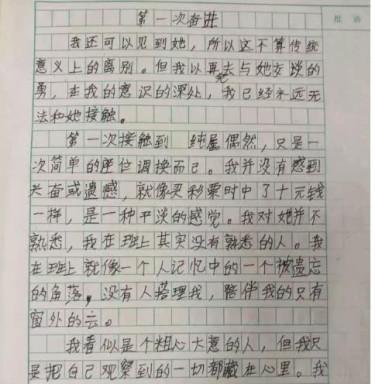 第一次奋进
批语
我还可以见到她，所以这不算传统
意义上的离别。但我以再无去与她交谈的
勇，在我的意识的深处，我已经永远无
法和她接触。
第一次接触到 纯属偶然，只是一
次简单的座位调换而已。我并没有感到
兴奋或遗憾，就像买彩票时中了十元钱
一样，是一种平淡的感觉。我对她并不
熟悉，我在班上其实没有熟悉的人。我
在班上就像一个人记忆中的一个被遗忘
的角落，没有人搭理我，陪伴我的只有
窗外的云。
我看似是个粗心大意的人，但我只
是把自己观察到的一切都藏在心里。我